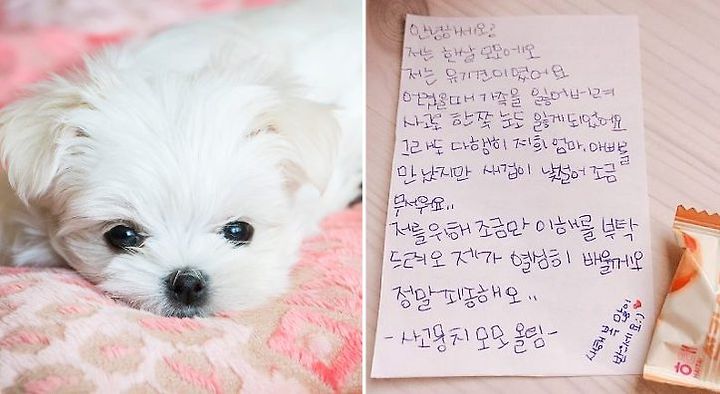 안녕하세요!
저는 한살 모모에오
저는 유기견이였어요
어렸을때 가족을 잃어버려
사고로 한쪽 눈도 잃게되었어요
그래도 다행히 저희 엄마, 아빠를
만났지만 새집이 낯설어 조금
무서워요..
저를위해 조금만 이해를 부탁
드려오 제가 열심히 배울게오
정말 죄송해오..
-사고뭉치 모모 올림-